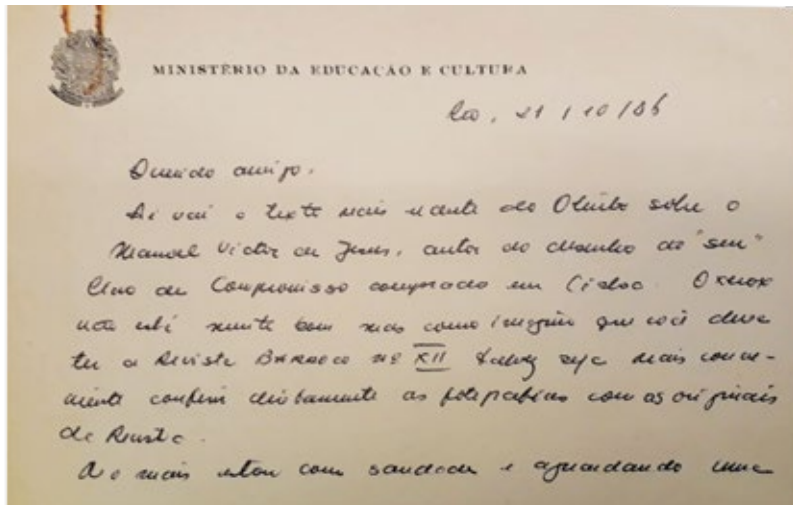 MINISTÉRIO DA EDUCAÇÃO E CULTURA
Rio, 21/10/86
Querido amigo,
Aí vai o texto mais recente do Olinto sobre o
Manoel Victor de Jesus, autor do desenho do "seu"
Livro de Compromisso comprado em Lisboa. O xerox
não está muito bom mas como imagino que você deve
ter a Revista BARROCO nº XII talvez seja mais conve-
niente conferir diretamente as fotografias com as originais
da Revista.
No mais estou com saudade e aguardando uma